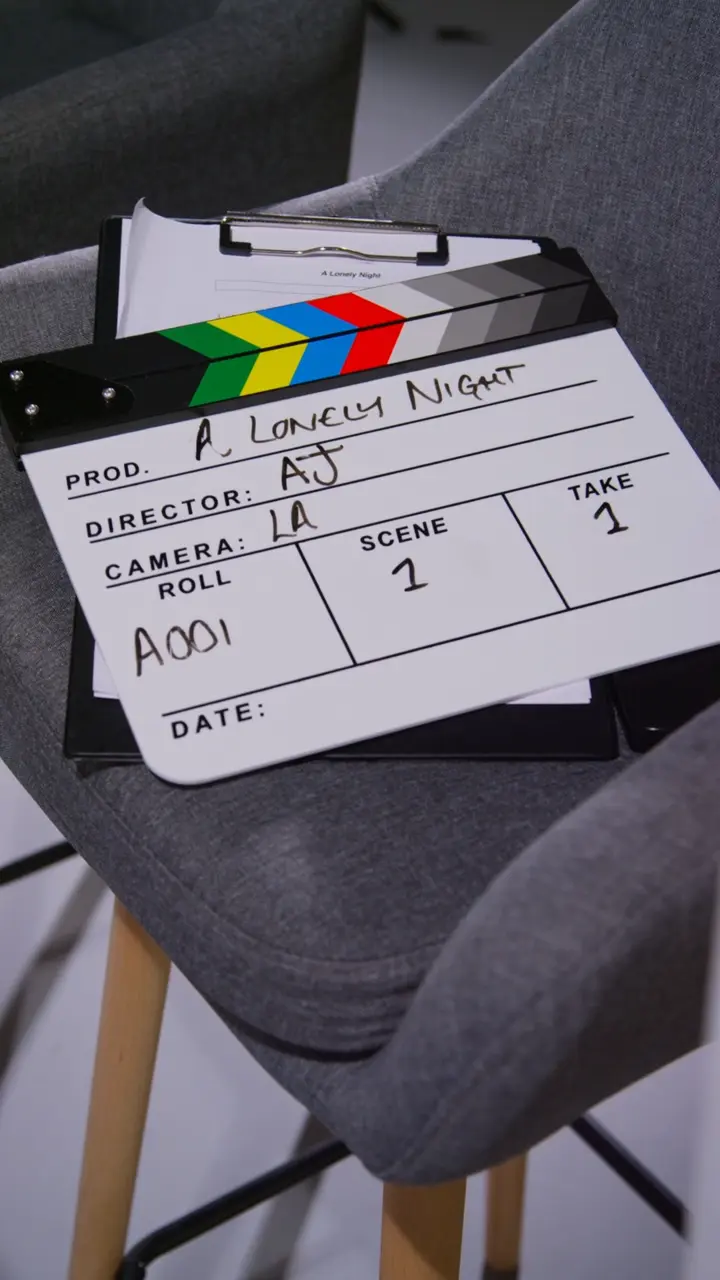 A Lonely Night
PROD. A LONELY NIGHT
DIRECTOR: AJ
CAMERA: LA
ROLL SCENE TAKE
A001 1 1
DATE: